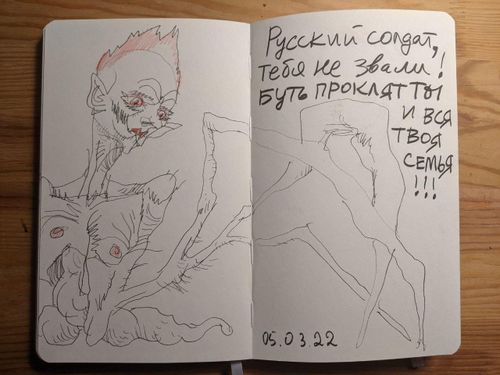 Русский солдат,
тебя не звали!
БУТЬ ПРОКЛЯТ ТЫ
И ВСЯ
ТВОЯ
СЕМЬЯ
!!!
05.03.22